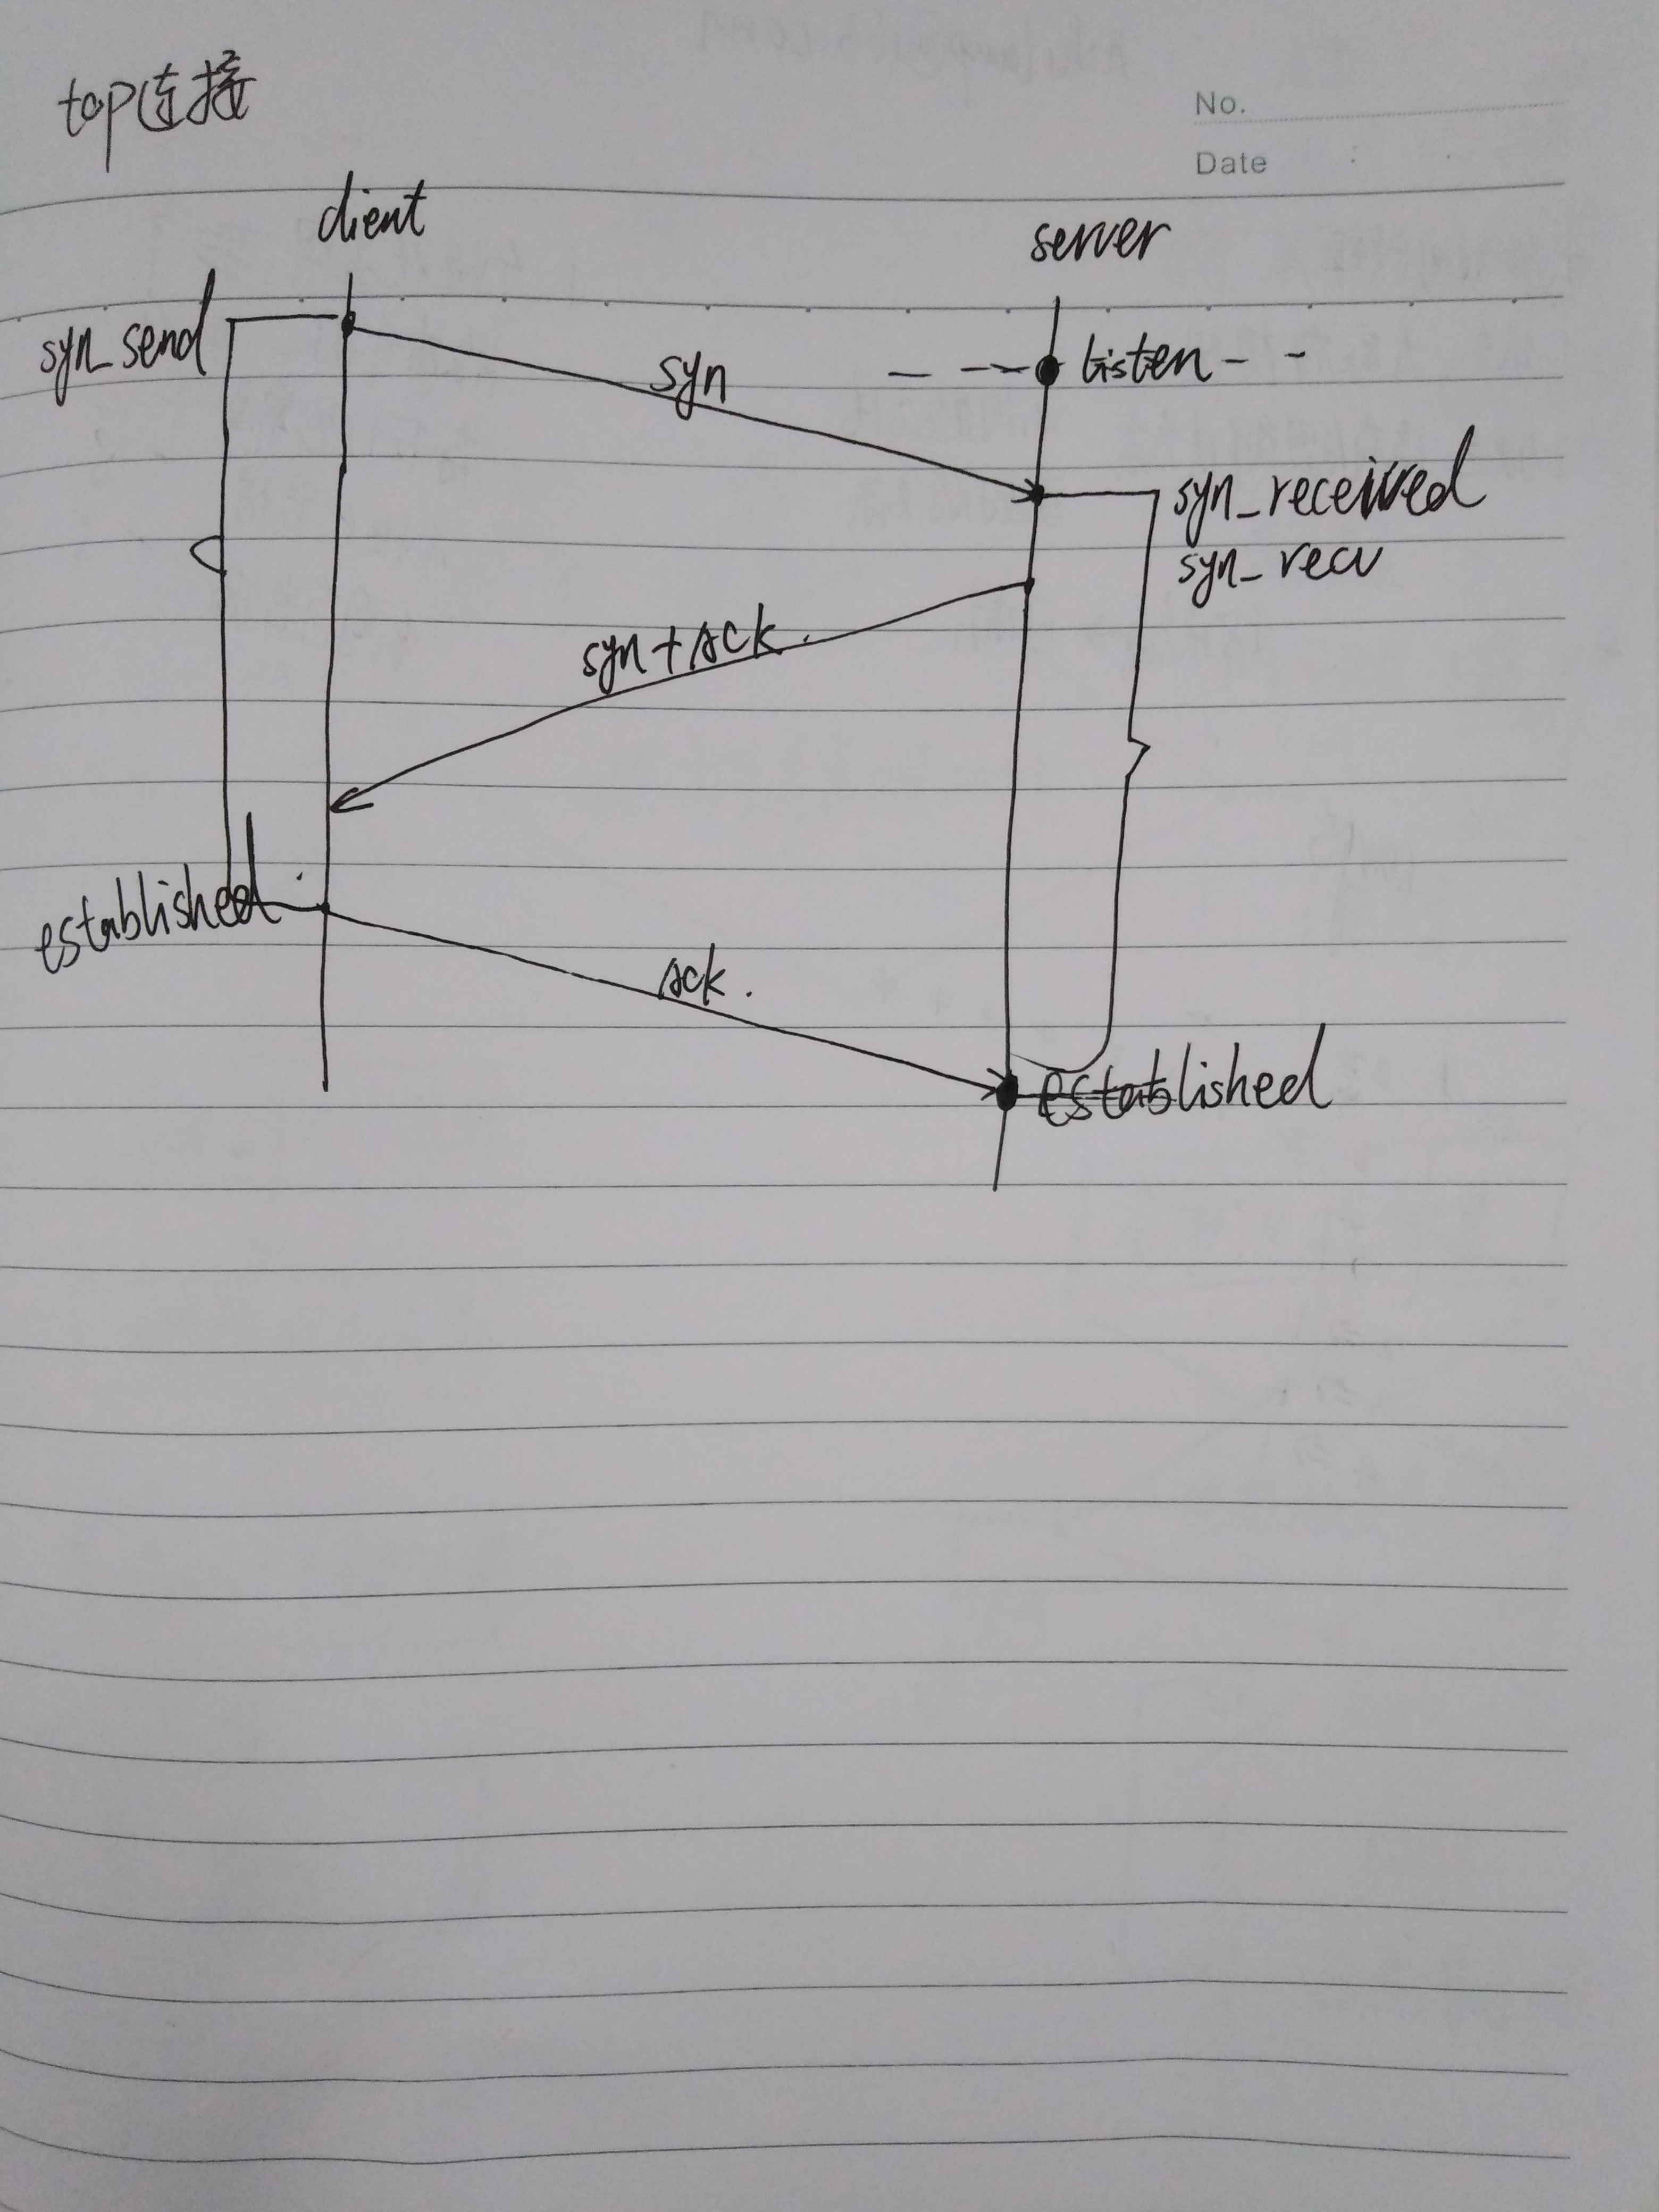 tcp连接
No.
Date
client
server
syn_send
syn
listen
syn_received
syn_recv
syn+ACK.
established.
ACK.
established